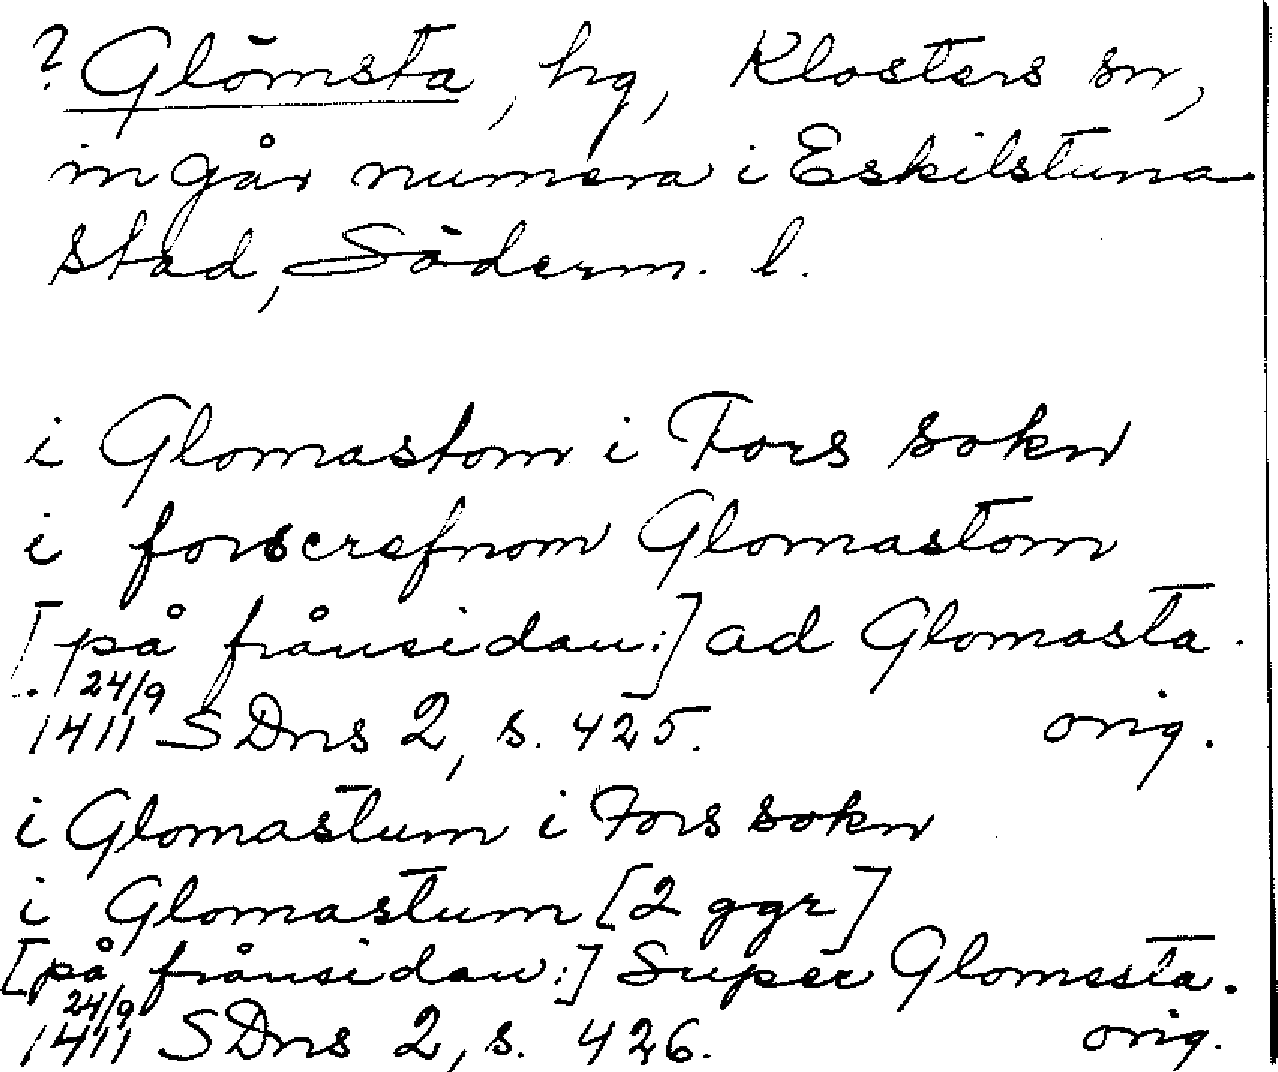 ? Glömsta, hg, Klosters sn,
ingår numera i Eskilstuna
stad, Söderm. l.
i Glomastom i Fors sokn
i forscrefnom Glomastom
[på frånsidan:] ad Glomasta.
24/9
1411 SDns 2, s. 425. orig.
i Glomastum i Fors sokn
i Glomastum [2 ggr]
[på frånsidan:] Super Glomesta.
24/9
1411 SDns 2, s. 426. orig.